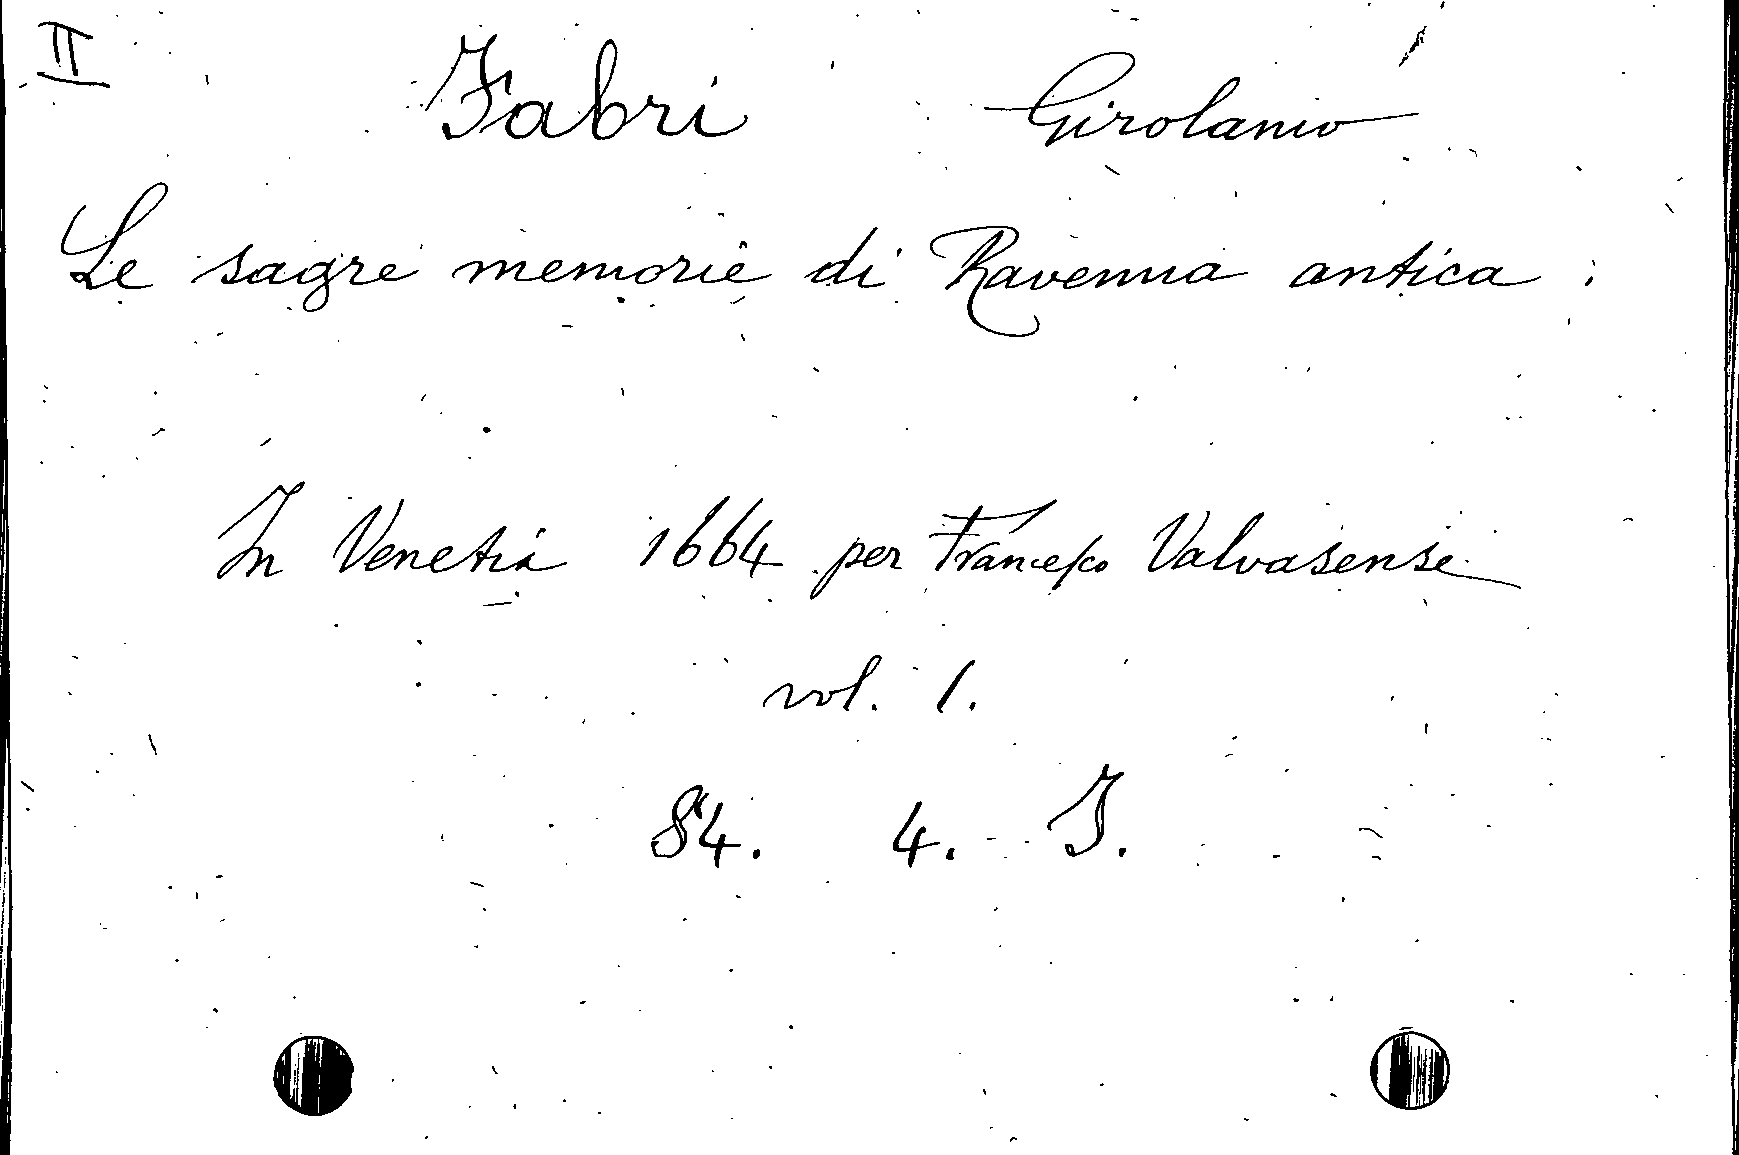 II
Fabri Girolamo
Le sagre memorie di Ravenna antica :
In Venetia 1664 per Francesco Valvasense
vol. 1.
84. 4. I.